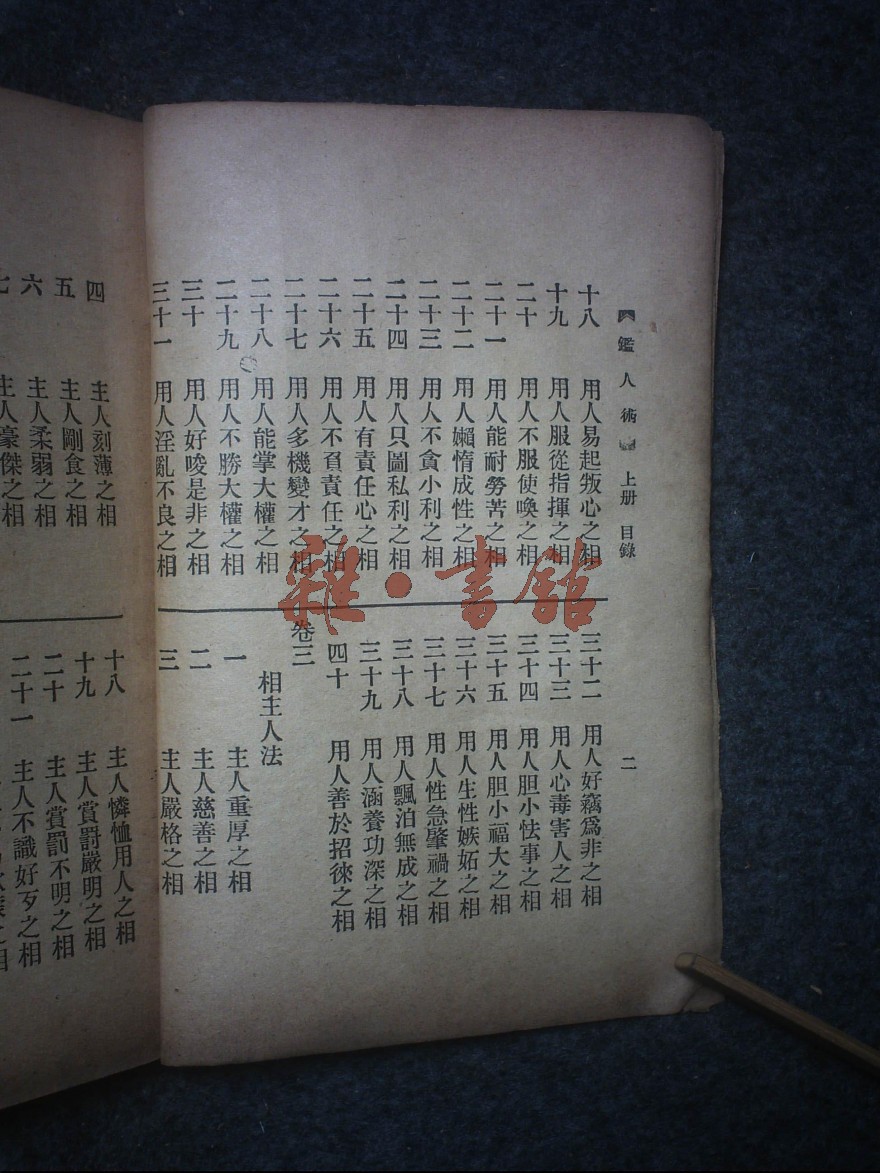 鑑人術 上册 目錄 二
十八 用人易起叛心之相
十九 用人服從指揮之相
二十 用人不服使喚之相
二十一 用人能耐勞苦之相
二十二 用人嬾惰成性之相
二十三 用人不貪小利之相
二十四 用人只圖私利之相
二十五 用人有責任心之相
二十六 用人不負責任之相
二十七 用人多機變才之相
二十八 用人能掌大權之相
二十九 用人不勝大權之相
三十 用人好唆是非之相
三十一 用人淫亂不良之相
三十二 用人好竊爲非之相
三十三 用人心毒害人之相
三十四 用人胆小怯事之相
三十五 用人胆小福大之相
三十六 用人生性嫉妬之相
三十七 用人性急肇禍之相
三十八 用人飄泊無成之相
三十九 用人涵養功深之相
四十 用人善於招徠之相
卷三
相主人法
一 主人重厚之相
二 主人慈善之相
三 主人嚴格之相
四 主人刻薄之相
五 主人剛食之相
六 主人柔弱之相
七 主人豪傑之相
十八 主人憐恤用人之相
十九 主人賞罰嚴明之相
二十 主人賞罰不明之相
二十一 主人不識好歹之相
雜·書館